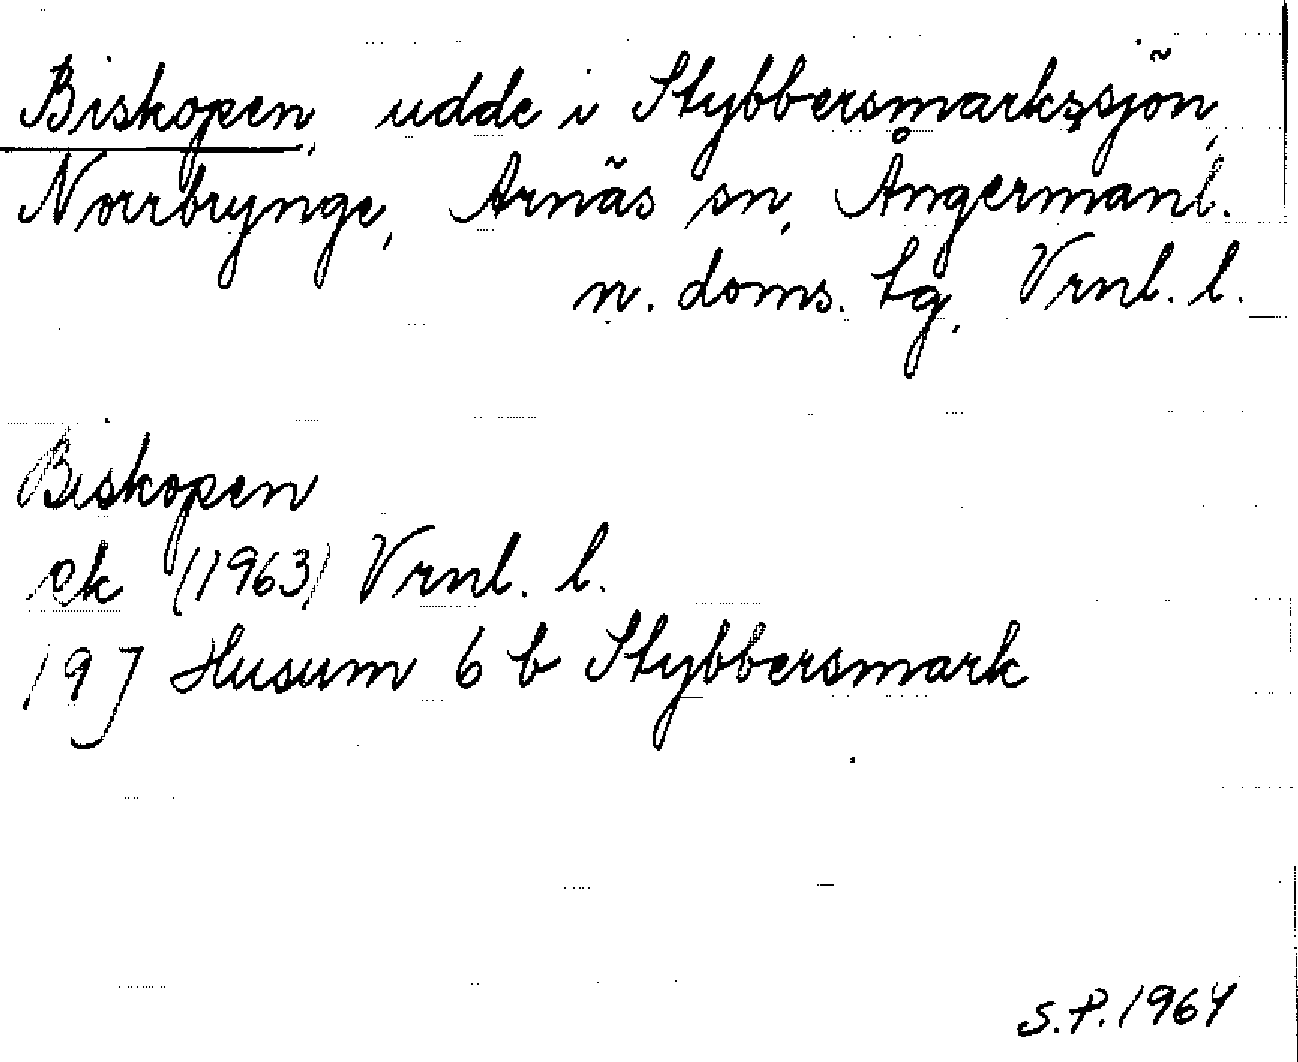 Biskopen, udde i Stybbersmarkssjön,
Norrbrynge, Arnäs sn, Ångermanl.
n. doms. tg, Vrnl. l.
Biskopen
ek (1963) Vrnl. l.
19J Husum 6 b Stybbersmark
S.P. 1964